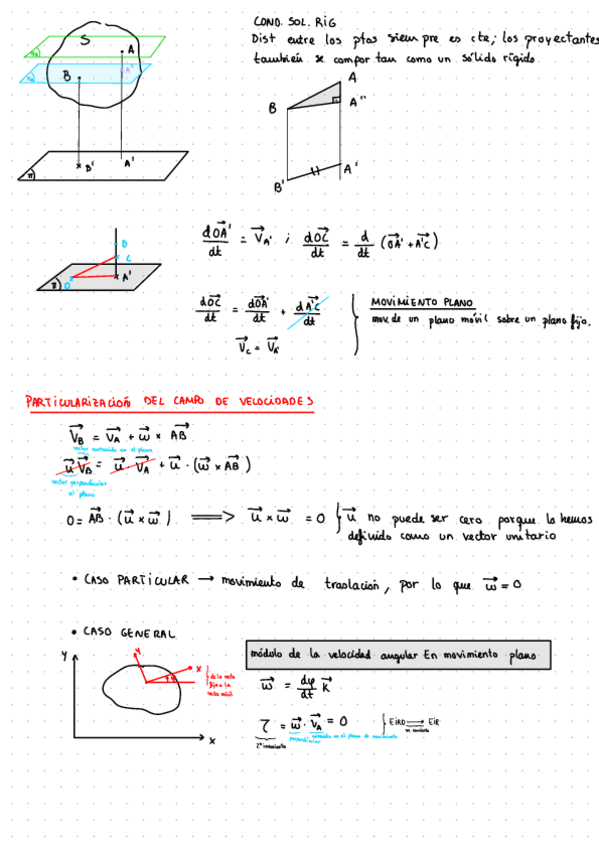 COND. SOL. RIG
Dist entre los ptos siempre es cte; los proyectantes
también se comportan como un sólido rígido.
S
A
A''
B
B'
A'
π
A
B
A''
A'
B'
D
C
A'
O
dOA'/dt = V_A' ; dOC/dt = d/dt (OA' + A'C)
dOC/dt = dOA'/dt + dA'C/dt
V_C = V_A'
MOVIMIENTO PLANO
mov. de un plano móvil sobre un plano fijo.
PARTICULARIZACIÓN DEL CAMPO DE VELOCIDADES
V_B = V_A + ω × AB
vector contenido en el plano
u V_B = u · V_A + u · (ω × AB)
vector perpendicular
al plano
0 = AB · (u × ω) ⟹ u × ω = 0 } u no puede ser cero porque lo hemos
definido como un vector unitario
• CASO PARTICULAR → movimiento de traslación, por lo que ω = 0
• CASO GENERAL
Y
y
x
φ
de la recta
fija a la
recta móvil
x
módulo de la velocidad angular En movimiento plano
ω = dφ/dt K
τ = ω · V_A = 0 } EIRD ⟹ EIR
2º invariante
perpendicular
contenido en el plano de movimiento
se convierte